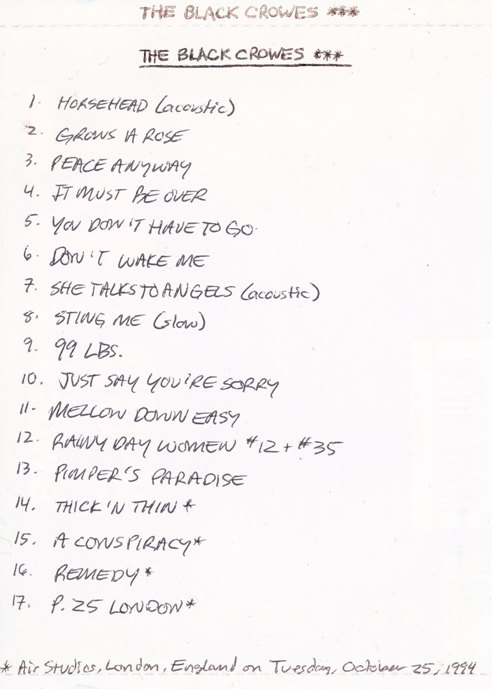 THE BLACK CROWES ***
THE BLACK CROWES ***
1. HORSEHEAD (acoustic)
2. GROWS A ROSE
3. PEACE ANYWAY
4. IT MUST BE OVER
5. YOU DON'T HAVE TO GO
6. DON'T WAKE ME
7. SHE TALKS TO ANGELS (acoustic)
8. STING ME (slow)
9. 99 LBS.
10. JUST SAY YOU'RE SORRY
11. MELLOW DOWN EASY
12. RAINY DAY WOMEN #12 + #35
13. PIMPER'S PARADISE
14. THICK 'N THIN *
15. A CONSPIRACY *
16. REMEDY *
17. P. 25 LONDON *
* Air Studios, London, England on Tuesday, October 25, 1994